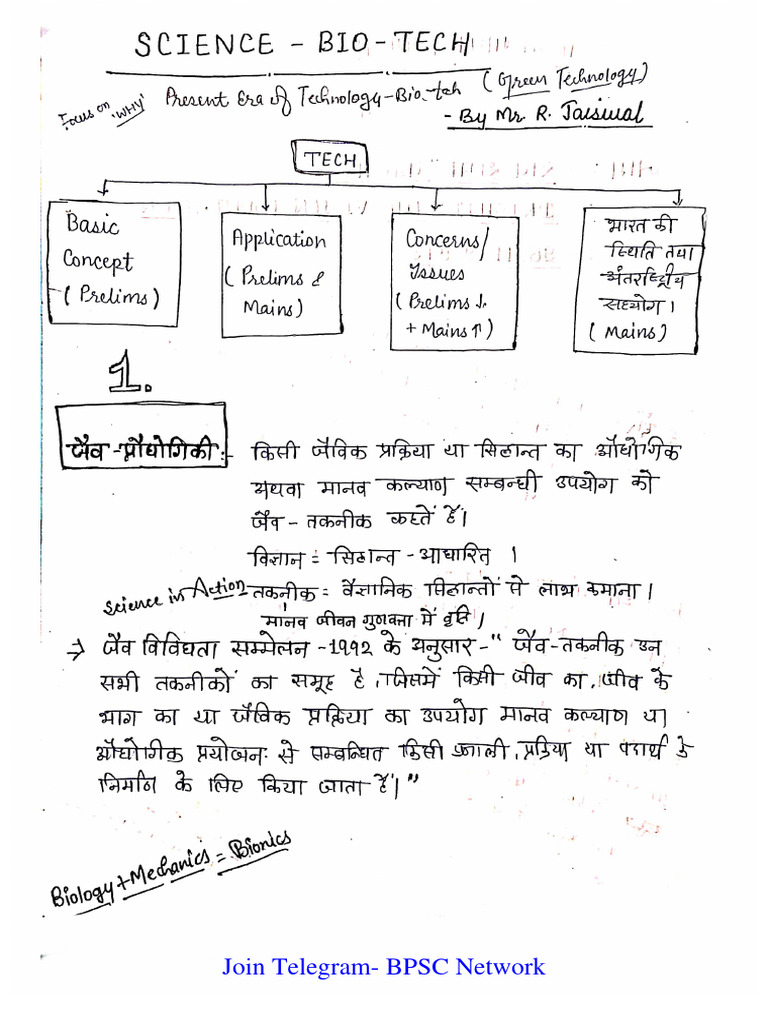 SCIENCE - BIO-TECH
Focus on 'WHY' Present Era of Technology-Bio-teh (Green Technology)
- By Mr. R. Jaiswal
TECH
Basic Concept (Prelims)
Application (Prelims & Mains)
Concerns/ Issues (Prelims ↓ + Mains ↑)
भारत की स्थिति तथा अंतर्राष्ट्रीय सहयोग। (Mains)
1.
जैव-प्रौद्योगिकी:- किसी जैविक प्रक्रिया या सिद्धान्त का औद्योगिक
अथवा मानव कल्याण सम्बन्धी उपयोग को
जैव-तकनीक कहतें हैं।
विज्ञान = सिद्धान्त - आधारित ।
Science in Action तकनीक = वैज्ञानिक सिद्धान्तों से लाभ कमाना।
मानव जीवन गुणवत्ता में वृद्धि।
→ जैव विविधता सम्मेलन -1992 के अनुसार-" जैव-तकनीक उन
सभी तकनीकों का समूह है, जिसमें किसी जीव का, जीव के
भाग का या जैविक प्रक्रिया का उपयोग मानव कल्याण या
औद्योगिक प्रयोजन से सम्बन्धित किसी प्रणाली, प्रक्रिया या पदार्थ के
निर्माण के लिए किया जाता है।"
Biology+Mechanics = Bionics
Join Telegram- BPSC Network